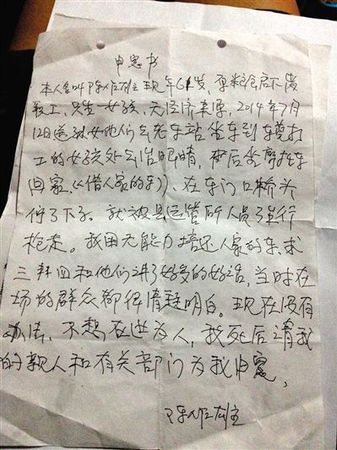 申冤书
本人名叫陈作雄 现年61岁,系粮食局下岗
职工,只生一女孩,无经济来源,2014年7月
12日送我女他们去东站坐车到东莞打
工的女孩处去治眼睛,而后骑摩托车
回家,(借人家的车)、在东门口桥头
停了下了。就被县运管所人员强行
抢走。我因无能力赔还人家的车求
三拜四和他们讲了好多的好话,当时在
场的群众都很清楚明白。现在没有
办法,不想在世为人,我死后请我
的亲人和有关部门为我申冤,
陈作雄